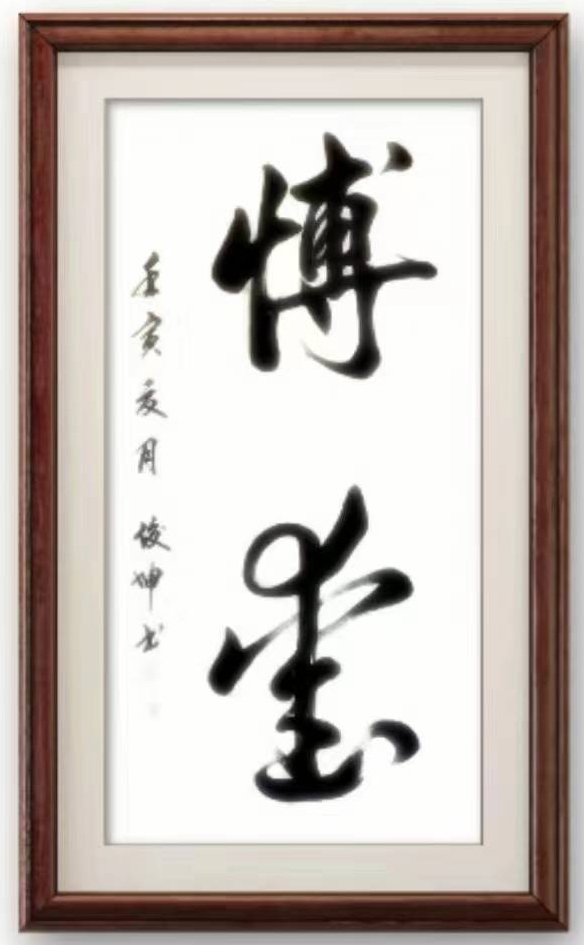 博
壬寅夏月 俊坤书